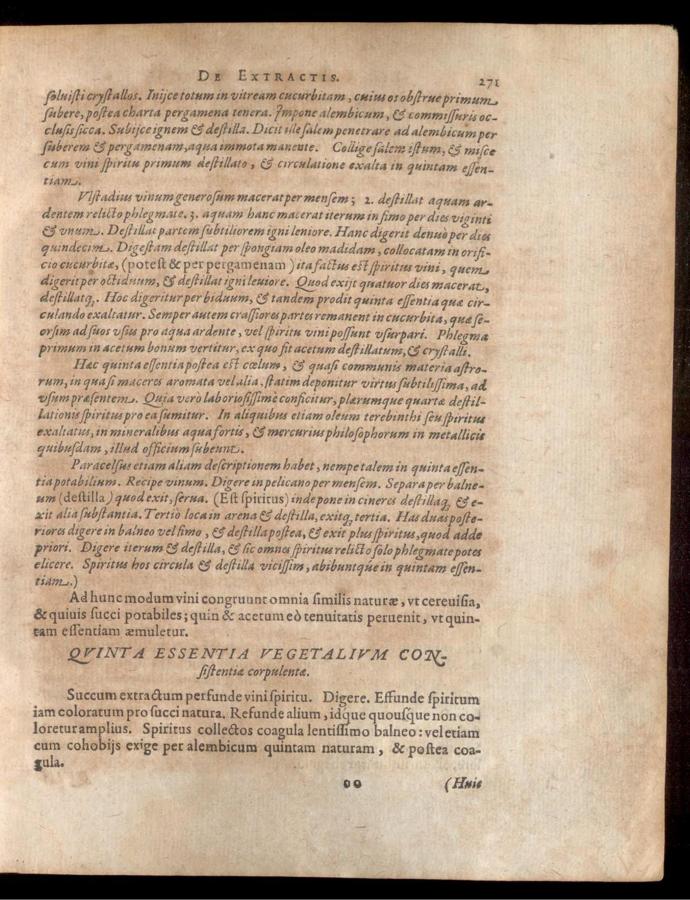 DE EXTRACTIS. 271
soluisti crystallos. Inijce totum in vitream cucurbitam, cuius os obstrue primum
subere, postea charta pergamena tenera. Impone alembicum, & commissuris oc-
clusis sicca. Subijce ignem & destilla. Dicit ille salem penetrare ad alembicum per
suberem & pergamenam, aqua immota manente. Collige salem istum, & misce
cum vini spiritu primum destillato, & circulatione exalta in quintam essen-
tiam.
Vlstadius vinum generosum macerat per mensem; 2. destillat aquam ar-
dentem relicto phlegmate. 3. aquam hanc macerat iterum in fimo per dies viginti
& vnum. Destillat partem subtiliorem igni leniore. Hanc digerit denuò per dies
quindecim. Digestam destillat per spongiam oleo madidam, collocatam in orifi-
cio cucurbitæ, (potest & per pergamenam) ita factus est spiritus vini, quem
digerit per octiduum, & destillat igni leuiore. Quod exijt quatuor dies macerat,
destillatq;. Hoc digeritur per biduum, & tandem prodit quinta essentia quæ cir-
culando exaltatur. Semper autem crassiores partes remanent in cucurbita, quæ se-
orsim ad suos vsus pro aqua ardente, vel spiritu vini possunt vsurpari. Phlegma
primum in acetum bonum vertitur, ex quo fit acetum destillatum, & crystalli.
Hæc quinta essentia postea est cœlum, & quasi communis materia astro-
rum, in qua si maceres aromata vel alia, statim deponitur virtus subtilissima, ad
vsum præsentem. Quia verò laboriosissimè conficitur, plærumque quartæ destil-
lationis spiritus pro ea sumitur. In aliquibus etiam oleum terebinthi seu spiritus
exaltatus, in mineralibus aqua fortis, & mercurius philosophorum in metallicis
quibusdam, illud officium subeunt.
Paracelsus etiam aliam descriptionem habet, nempe talem in quinta essen-
tia potabilium. Recipe vinum. Digere in pelicano per mensem. Separa per balne-
um (destilla) quod exit, serua. (Est spiritus) inde pone in cineres destillaq; & e-
xit alia substantia. Tertiò loca in arena & destilla, exitq; tertia. Has duas poste-
riores digere in balneo vel fimo, & destilla postea, & exit plus spiritus, quod adde
priori. Digere iterum & destilla, & sic omnes spiritus relicto solo phlegmate potes
elicere. Spiritus hos circula & destilla vicissim, abibuntque in quintam essen-
tiam.)
Ad hunc modum vini congruunt omnia similis naturæ, vt cereuisia,
& quiuis succi potabiles; quin & acetum eò tenuitatis peruenit, vt quin-
tam essentiam æmuletur.
QVINTA ESSENTIA VEGETALIVM CON-
sistentiæ corpulentæ.
Succum extractum perfunde vini spiritu. Digere. Effunde spiritum
iam coloratum pro succi natura. Refunde alium, idque quousque non co-
loretur amplius. Spiritus collectos coagula lentissimo balneo: vel etiam
cum cohobijs exige per alembicum quintam naturam, & postea coa-
gula.
oo (Huic